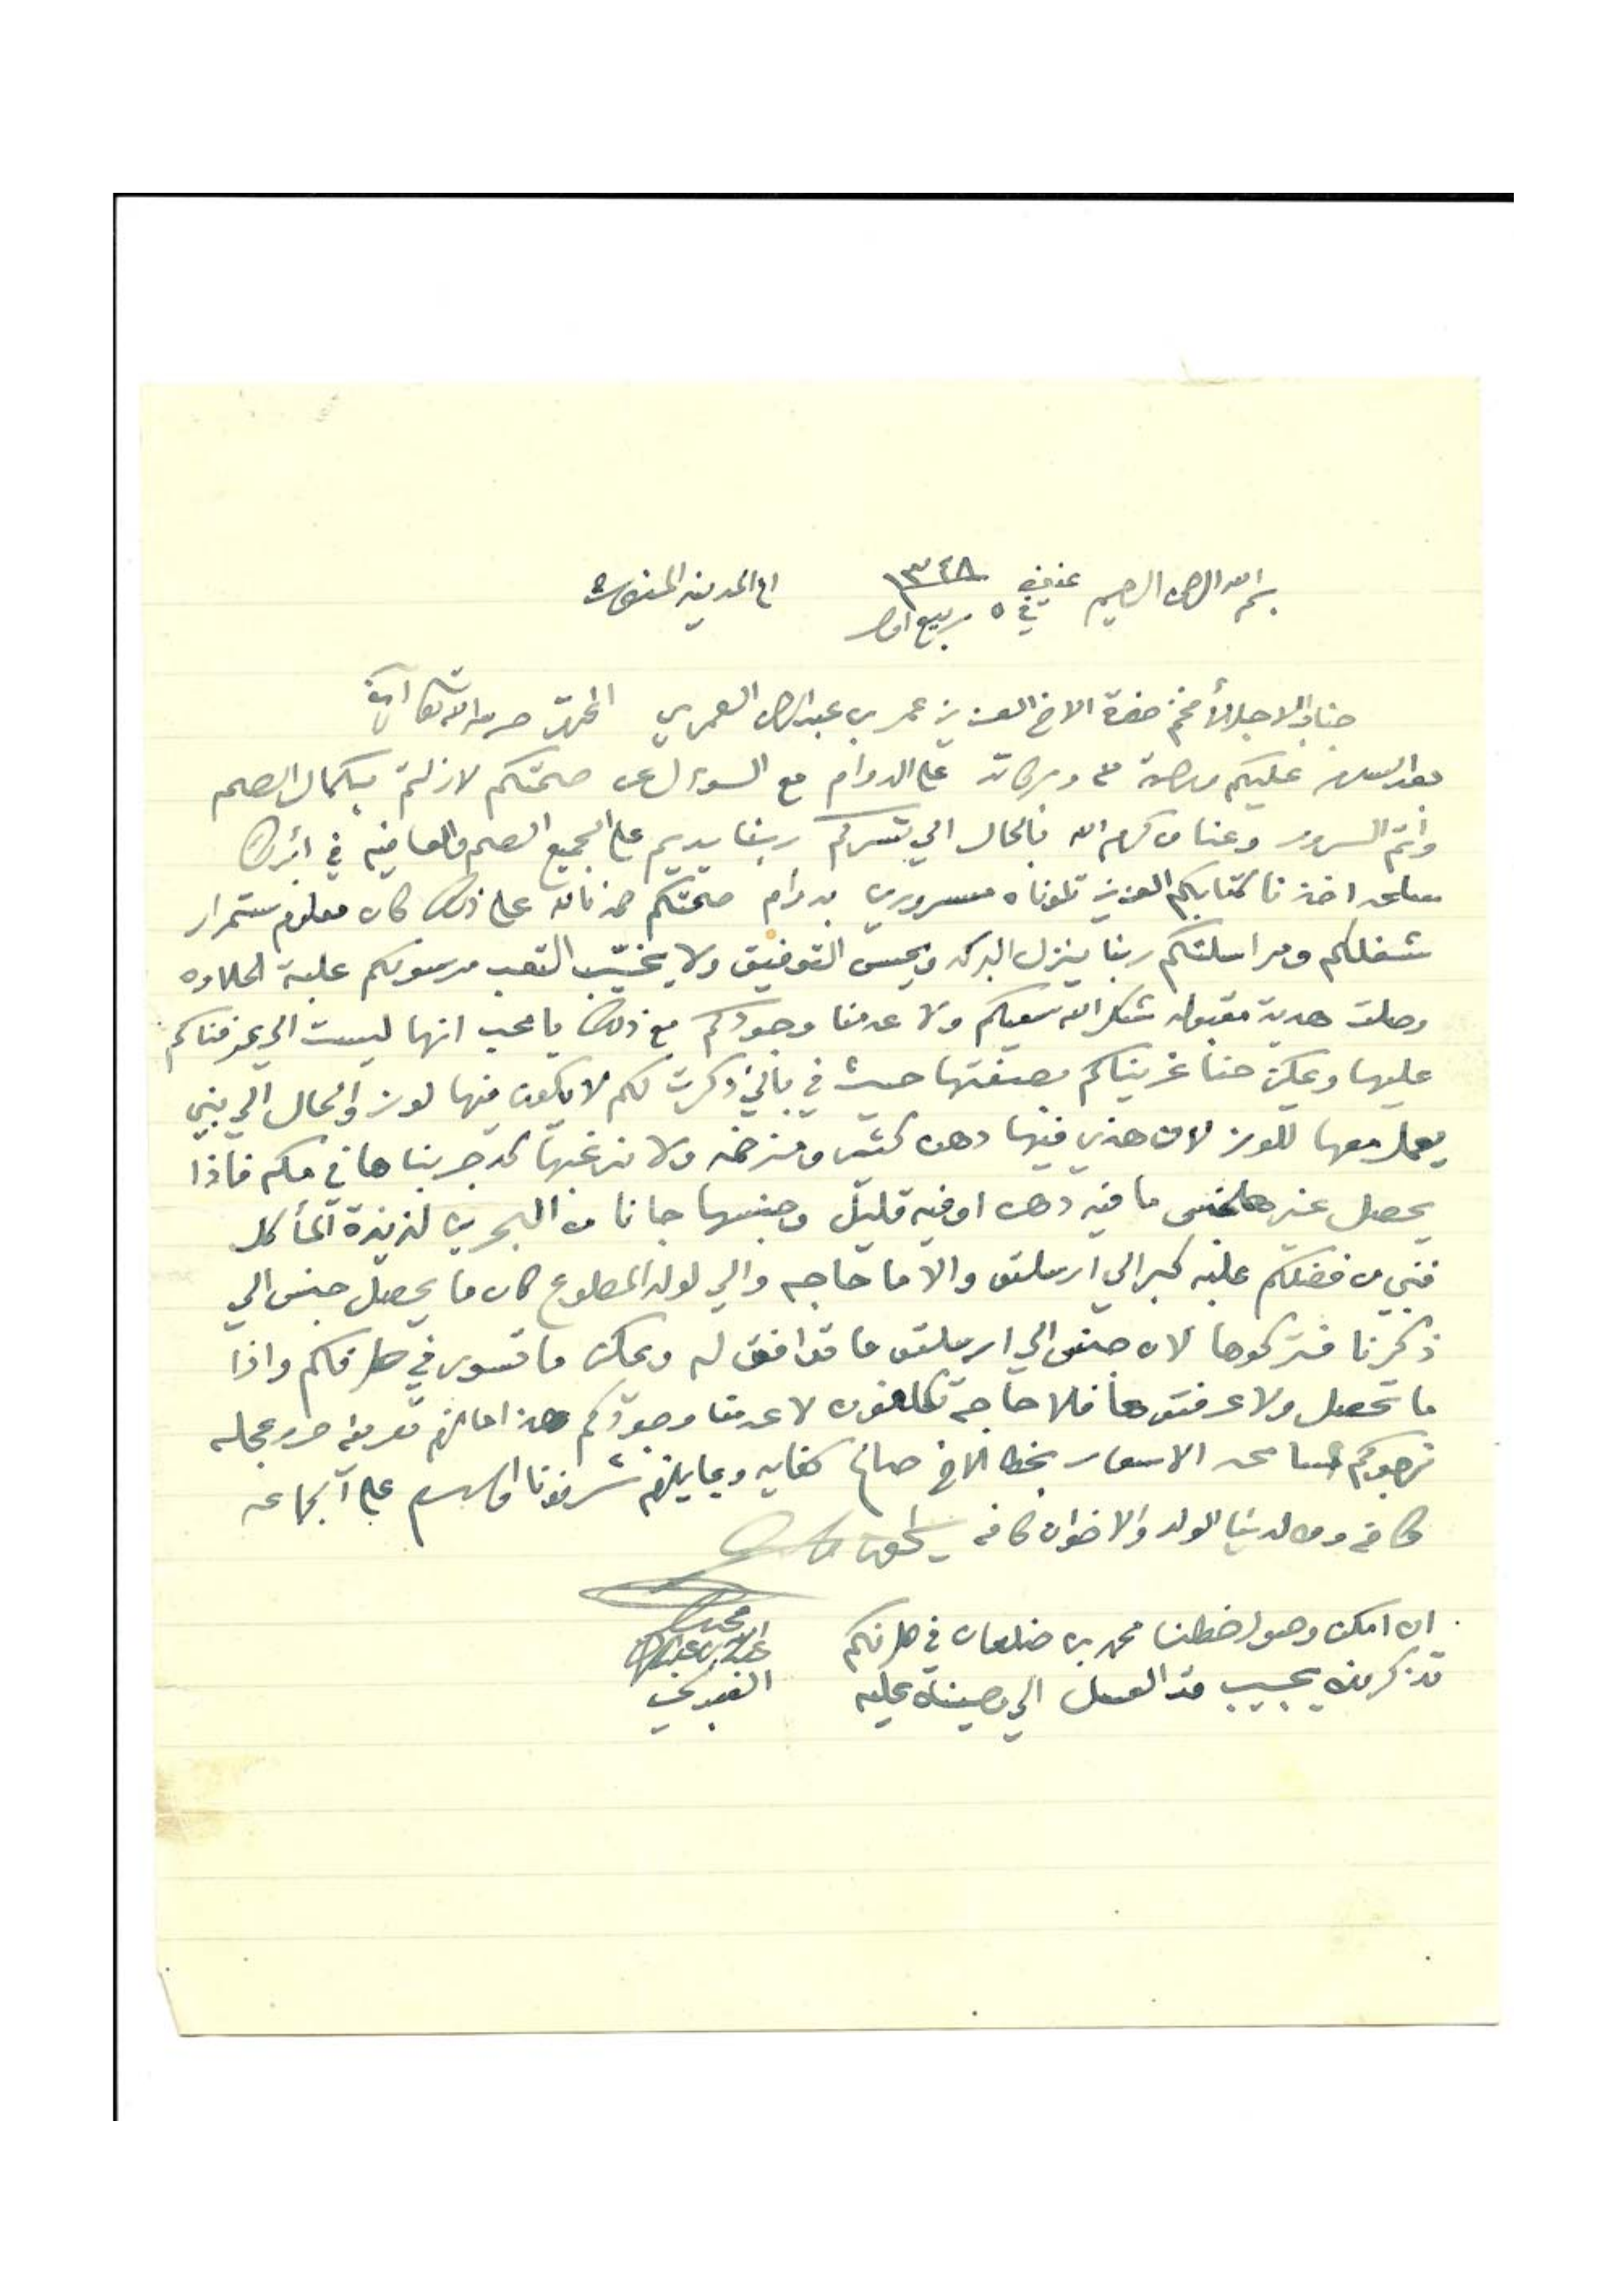 بسم الله الرحمن الرحيم عنيزة في ٥ ربيع اول ١٣٤٨ الى المدينه المنوره
جناب الاجل الأفخم حضرة الاخ العزيز عمر بن عبدالرحمن العمري المحترم حرسه الله تعالى آمين
بعد السلام عليكم ورحمة الله وبركاته على الدوام مع السوءال عن صحتكم لازلتم بكمال الصحه
واتم السرور وعنا من كرم الله بالحال الي تسركم ربنا يديم على الجميع الصحه والعافيه في ابرك
ساعه اخذنا كتابكم العزيز تلوناه مسرورين بدوام صحتكم حمدنا الله على ذلك كان معلوم ستمرار
شغلكم ومراسلتكم ربنا ينزل البركه ويحسن التوفيق ولا يخيب التعب مرسولكم علبة الحلاوه
وصلت هدية مقبوله شكر الله سعيكم ولا عدمنا وجودكم مع ذلك يا محب انها ليست الي عرفناكم
عليها ويمكن حنا غريناكم بصفتها حيث في بالي ذكرت لكم لا يكون فيها لوز والحال الي نبي
يعمل معها اللوز لان هذي فيها دهن كثير ومزنخه ولا نرغبها قد جربناها في مكه فاذا
يحصل غيرها جنس ما فيه دهن او فيه قليل وجنسها جانا من البحرين لذيذة المأكل
فنبي من فضلكم علبه كبر الي ارسلتو والا ما حاجه والي لولد المطوع كان ما يحصل جنس الي
ذكرنا فتركوها لان جنس الي ارسلتو ما توافق له ويمكن ما تسوى في طرفكم واذا
ما تحصل ولا عرفتوها فلا حاجة تكلفون لا عدمنا وجودكم هذا ما لزم تعريفه حرر عجله
نرجوكم السامحه الاسعار بخط الاخ صالح كفايه وبما يلزم شرفونا والسلام على الجماعه
كافه ومن لدينا الولد والاخوان كافه
محبكم
عبدالله
ان امكن وصول خطنا محمد بن ضلعان في طرفكم
تذكرونه يجيب قد العسل الي وصيناه عليه